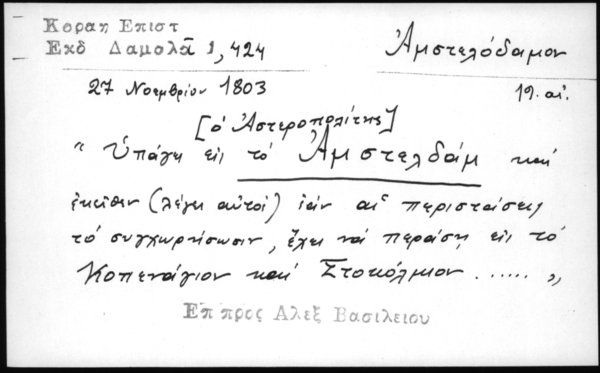 Κοραη Επιστ
Εκδ Δαμαλᾶ 1,424
Ἀμστελόδαμον
27 Νοεμβρίου 1803
19. αἰ.
[ὁ Ἀστεροπολίτης]
" Ὑπάγει εἰς τὸ Ἀμστελδάμ καὶ
ἐκεῖθεν (λέγει αὐτοῖ) ἐὰν αἱ περιστάσεις
τὸ συγχωρήσωσιν, ἔχει νὰ περάσῃ εἰς τὸ
Κοπενάγιον καὶ Στοκόλμιον ...... „
Επ προς Αλεξ Βασιλειου